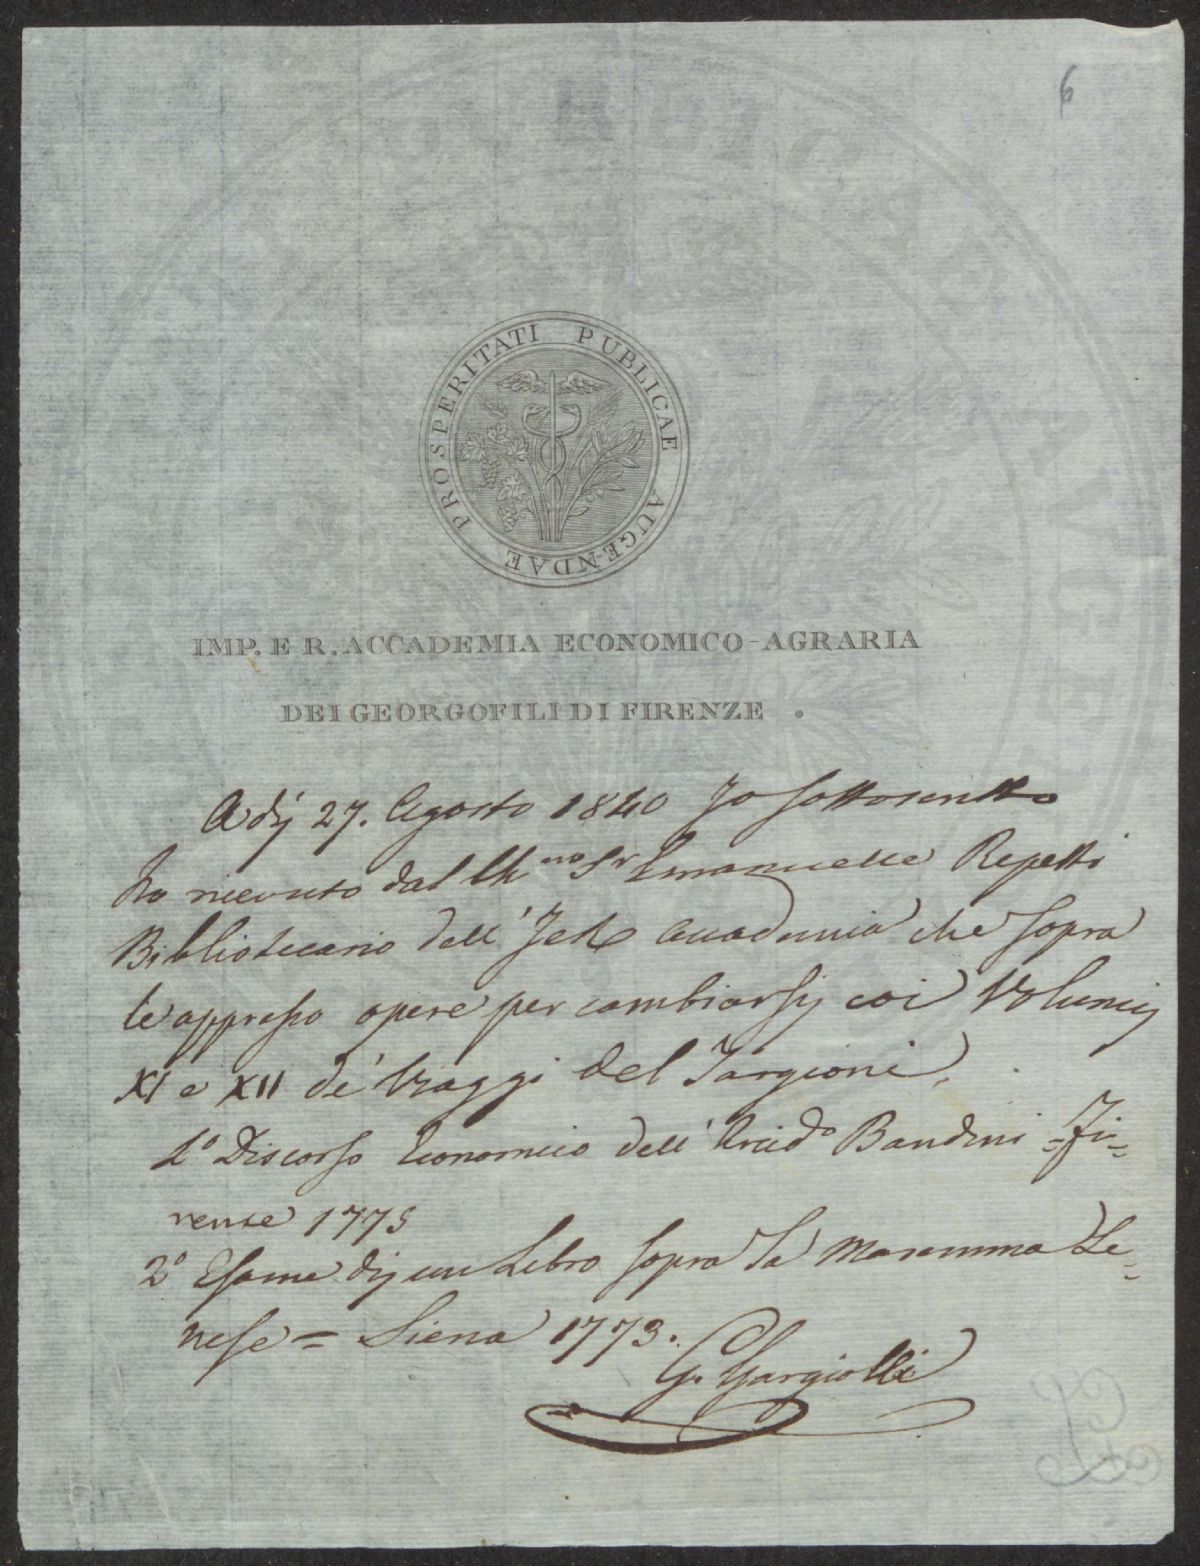 6
PROSPERITATI PUBLICAE AUGENDAE
IMP. E R. ACCADEMIA ECONOMICO-AGRARIA
DEI GEORGOFILI DI FIRENZE.
Adij 27. Agosto 1840 Io sottoscritto
ho ricevuto dal Ch.mo Sr Emanuelle Repetti
Bibliotecario dell' I e R Accademia che sopra
le appresso opere per cambiarsij coi Volumij
XI e XII de' Viaggi del Targioni.
1º Discorso Economico dell' Arcidº Bandini =Fi=
renze 1775
2º Esame dij un Libro sopra la Maremma Se=
nese = Siena 1773.
G. Gargiolli